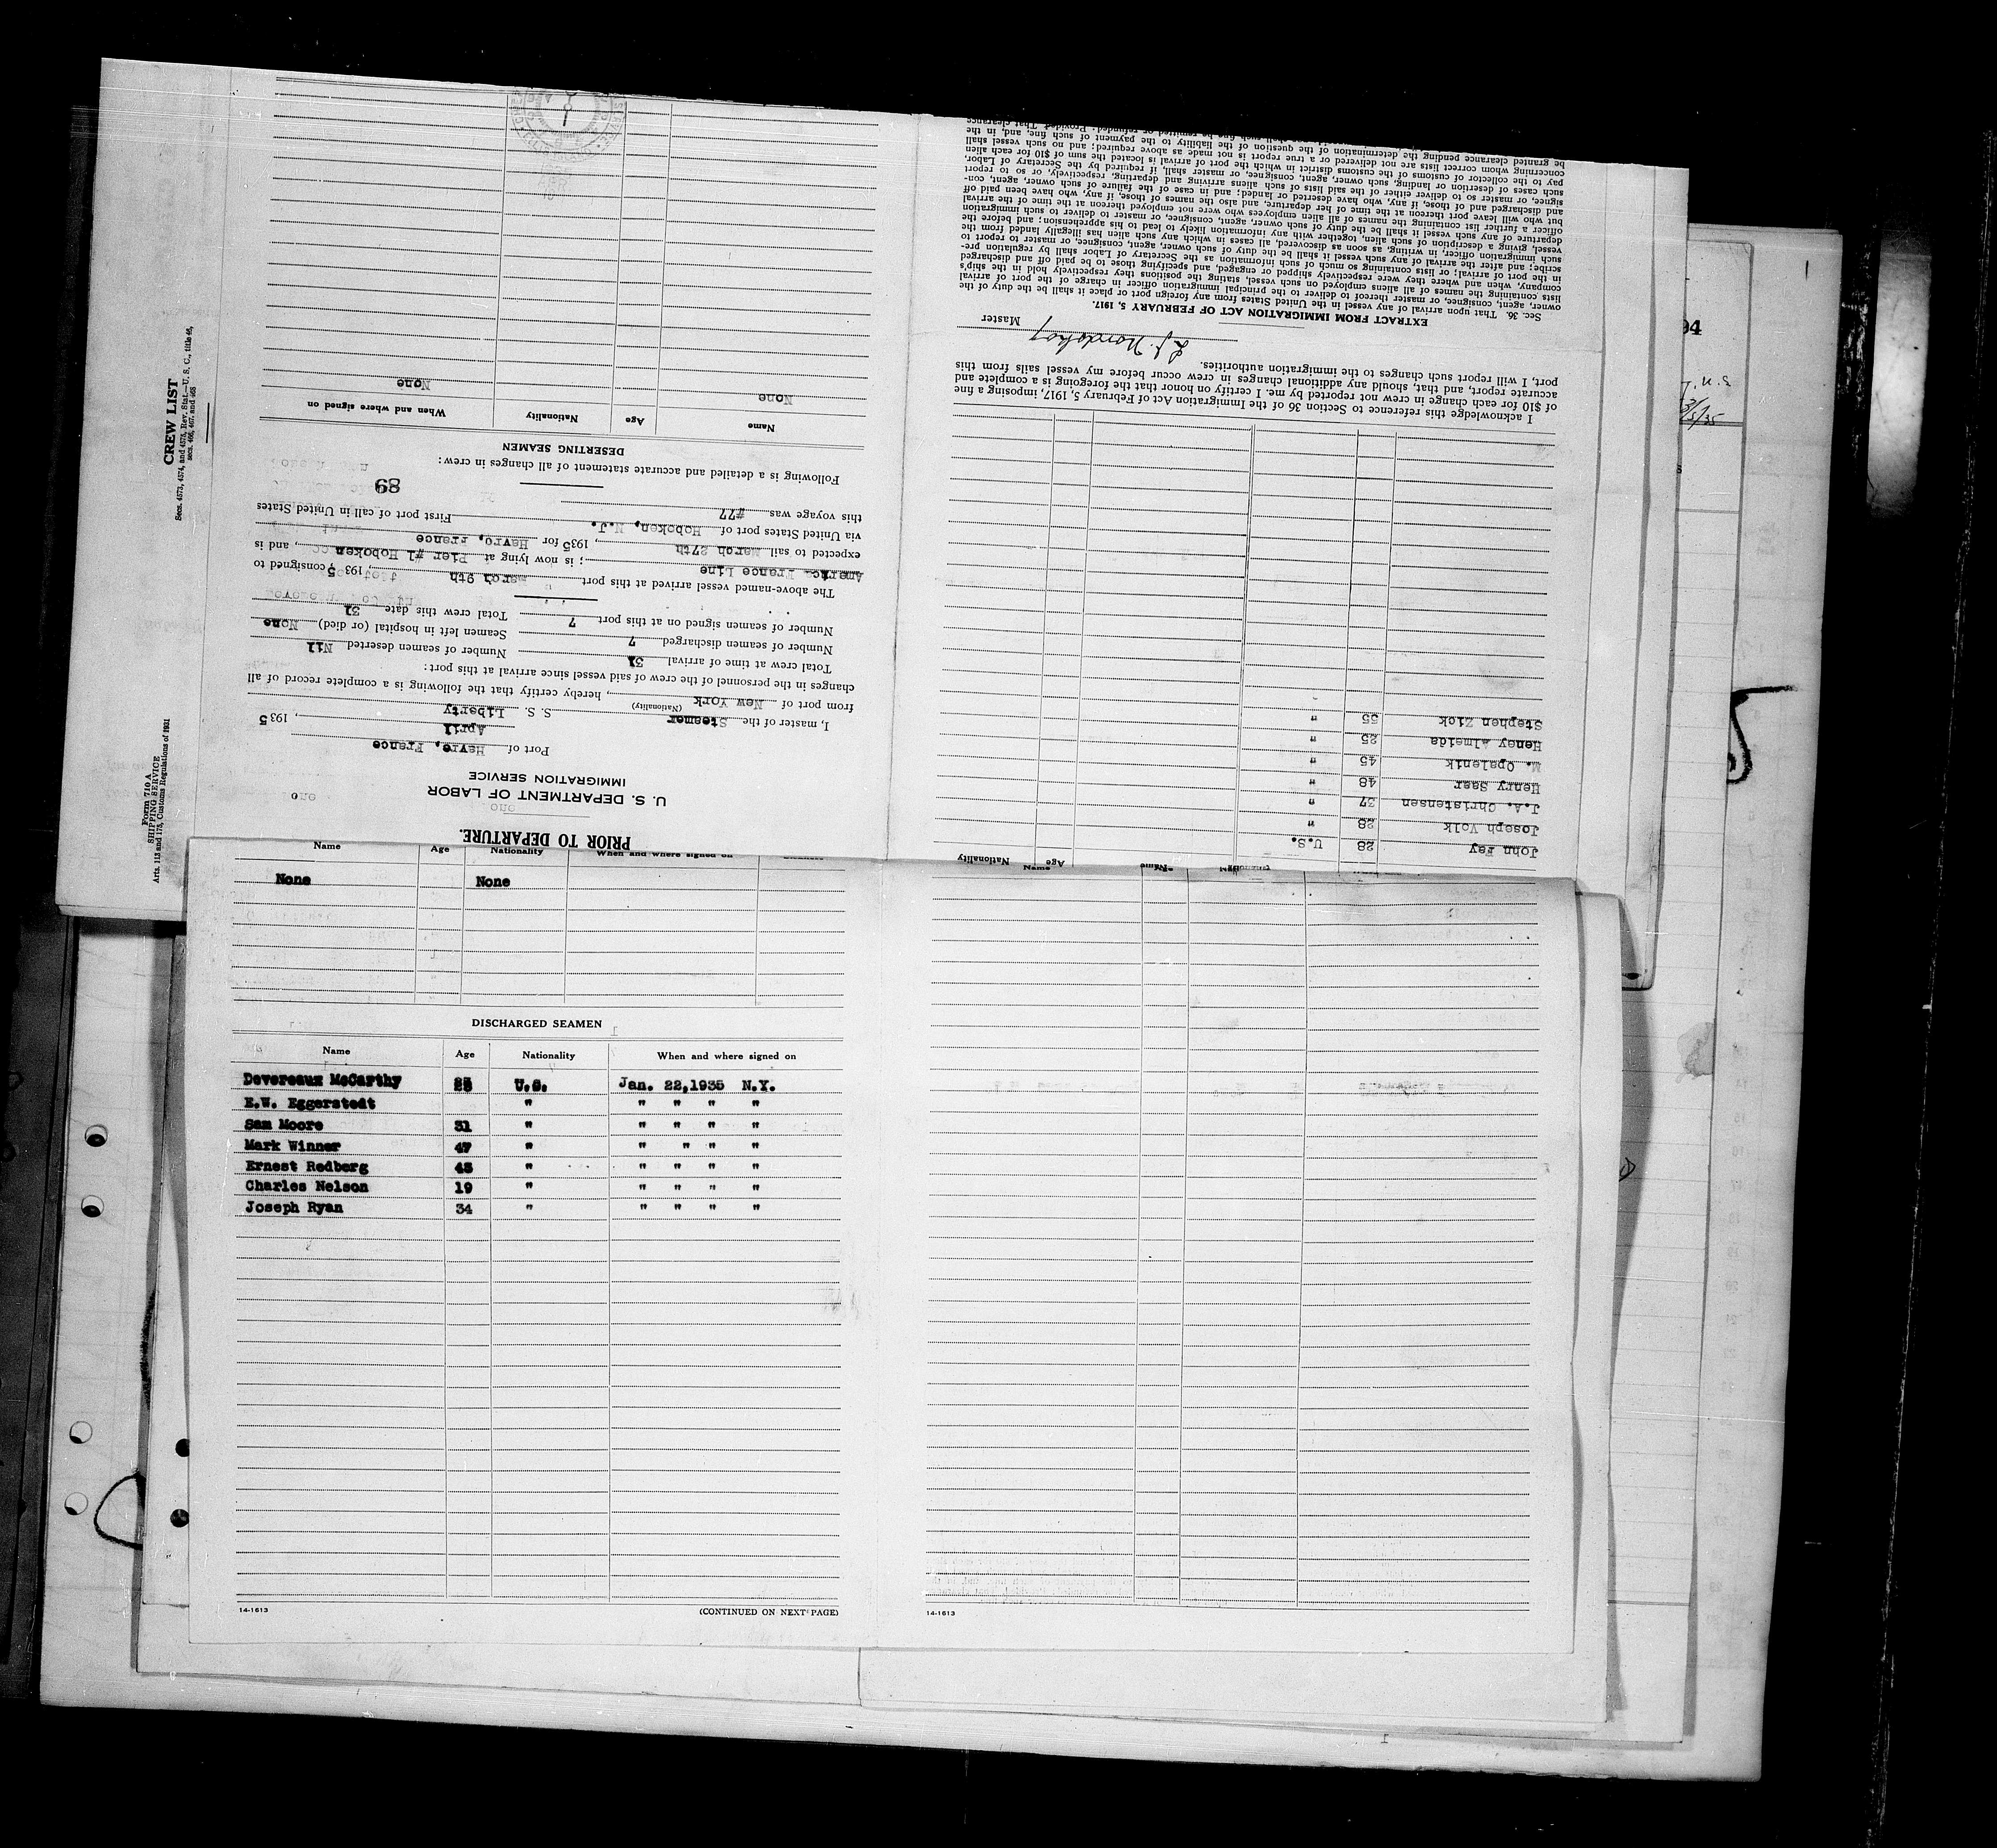 Form 710 A
SHIPPING SERVICE
Arts. 113 and 173, Customs Regulations of 1931
CREW LIST
Secs. 4573, 4574, and 4575, Rev. Stat.—U. S. C., title 46,
secs. 466, 467, and 468
PRIOR TO DEPARTURE.
U. S. DEPARTMENT OF LABOR
IMMIGRATION SERVICE
Port of Havre, France
April , 1935
I, master of the Steamer S. S. Liberty
(Nationality)
from port of New York, hereby certify that the following is a complete record of all
changes in the personnel of the crew of said vessel since arrival at this port:
Total crew at time of arrival 31 Number of seamen deserted Nil
Number of seamen discharged 7 Seamen left in hospital (or died) None
Number of seamen signed on at this port 7 Total crew this date 31
The above-named vessel arrived at this port March 9th, 1935 consigned to
America France Line; is now lying at Pier #1 Hoboken, and is
expected to sail March 27th, 1935 for Havre, France
via United States port of Hoboken, N.J. First port of call in United States
this voyage was #77
68
Following is a detailed and accurate statement of all changes in crew:
DESERTING SEAMEN
Name Age Nationality When and where signed on
None None
Name Age Nationality
John Fay 28 U.S.
Joseph Volk 28 "
J.A. Christensen 37 "
Henry Saar 48 "
M. Opalenik 45 "
Heney Almeida 25 "
Stephen Zick 55 "
I acknowledge this reference to Section 36 of the Immigration Act of February 5, 1917, imposing a fine
of $10 for each change in crew not reported by me. I certify on honor that the foregoing is a complete and
accurate report, and that, should any additional changes in crew occur before my vessel sails from this
port, I will report such changes to the immigration authorities.
Master
EXTRACT FROM IMMIGRATION ACT OF FEBRUARY 5, 1917.
Sec. 36. That upon arrival of any vessel in the United States from any foreign port or place it shall be the duty of the
owner, agent, consignee, or master thereof to deliver to the principal immigration officer in charge of the port of arrival
lists containing the names of all aliens employed on such vessel, stating the positions they respectively hold in the ship's
company, when and where they were respectively shipped or engaged, and specifying those to be paid off and discharged
in the port of arrival; or lists containing so much of such information as the Secretary of Labor shall by regulation pre-
scribe; and after the arrival of any such vessel it shall be the duty of such owner, agent, consignee, or master to report to
such immigration officer, in writing, as soon as discovered, all cases in which any such alien has illegally landed from the
vessel, giving a description of such alien, together with any information likely to lead to his apprehension; and before the
departure of any such vessel it shall be the duty of such owner, agent, consignee, or master to deliver to such immigration
officer a further list containing the names of all alien employees who were not employed thereon at the time of the arrival
but who will leave port thereon at the time of her departure, and also the names of those, if any, who have been paid off
and discharged and of those, if any, who have deserted or landed; and in case of the failure of such owner, agent, con-
signee, or master so to deliver either of the said lists of such aliens arriving and departing, respectively, or so to report
such cases of desertion or landing, such owner, agent, consignee, or master shall, if required by the Secretary of Labor,
pay to the collector of customs of the customs district in which the port of arrival is located the sum of $10 for each alien
concerning whom correct lists are not delivered or a true report is not made as above required; and no such vessel shall
be granted clearance pending the determination of the question of the liability to the payment of such fine, and, in the
Name Age Nationality When and where signed on
None None
DISCHARGED SEAMEN
Name Age Nationality When and where signed on
Devereaux McCarthy U.S. Jan. 22,1935 N.Y.
E.W. Eggerstedt " " " " "
Sam Moore 31 " " " " "
Mark Winner 47 " " " " "
Ernest Redberg 43 " " " " "
Charles Nelson 19 " " " " "
Joseph Ryan 34 " " " " "
14-1613 (CONTINUED ON NEXT PAGE)
14-1613
94
3/5/35